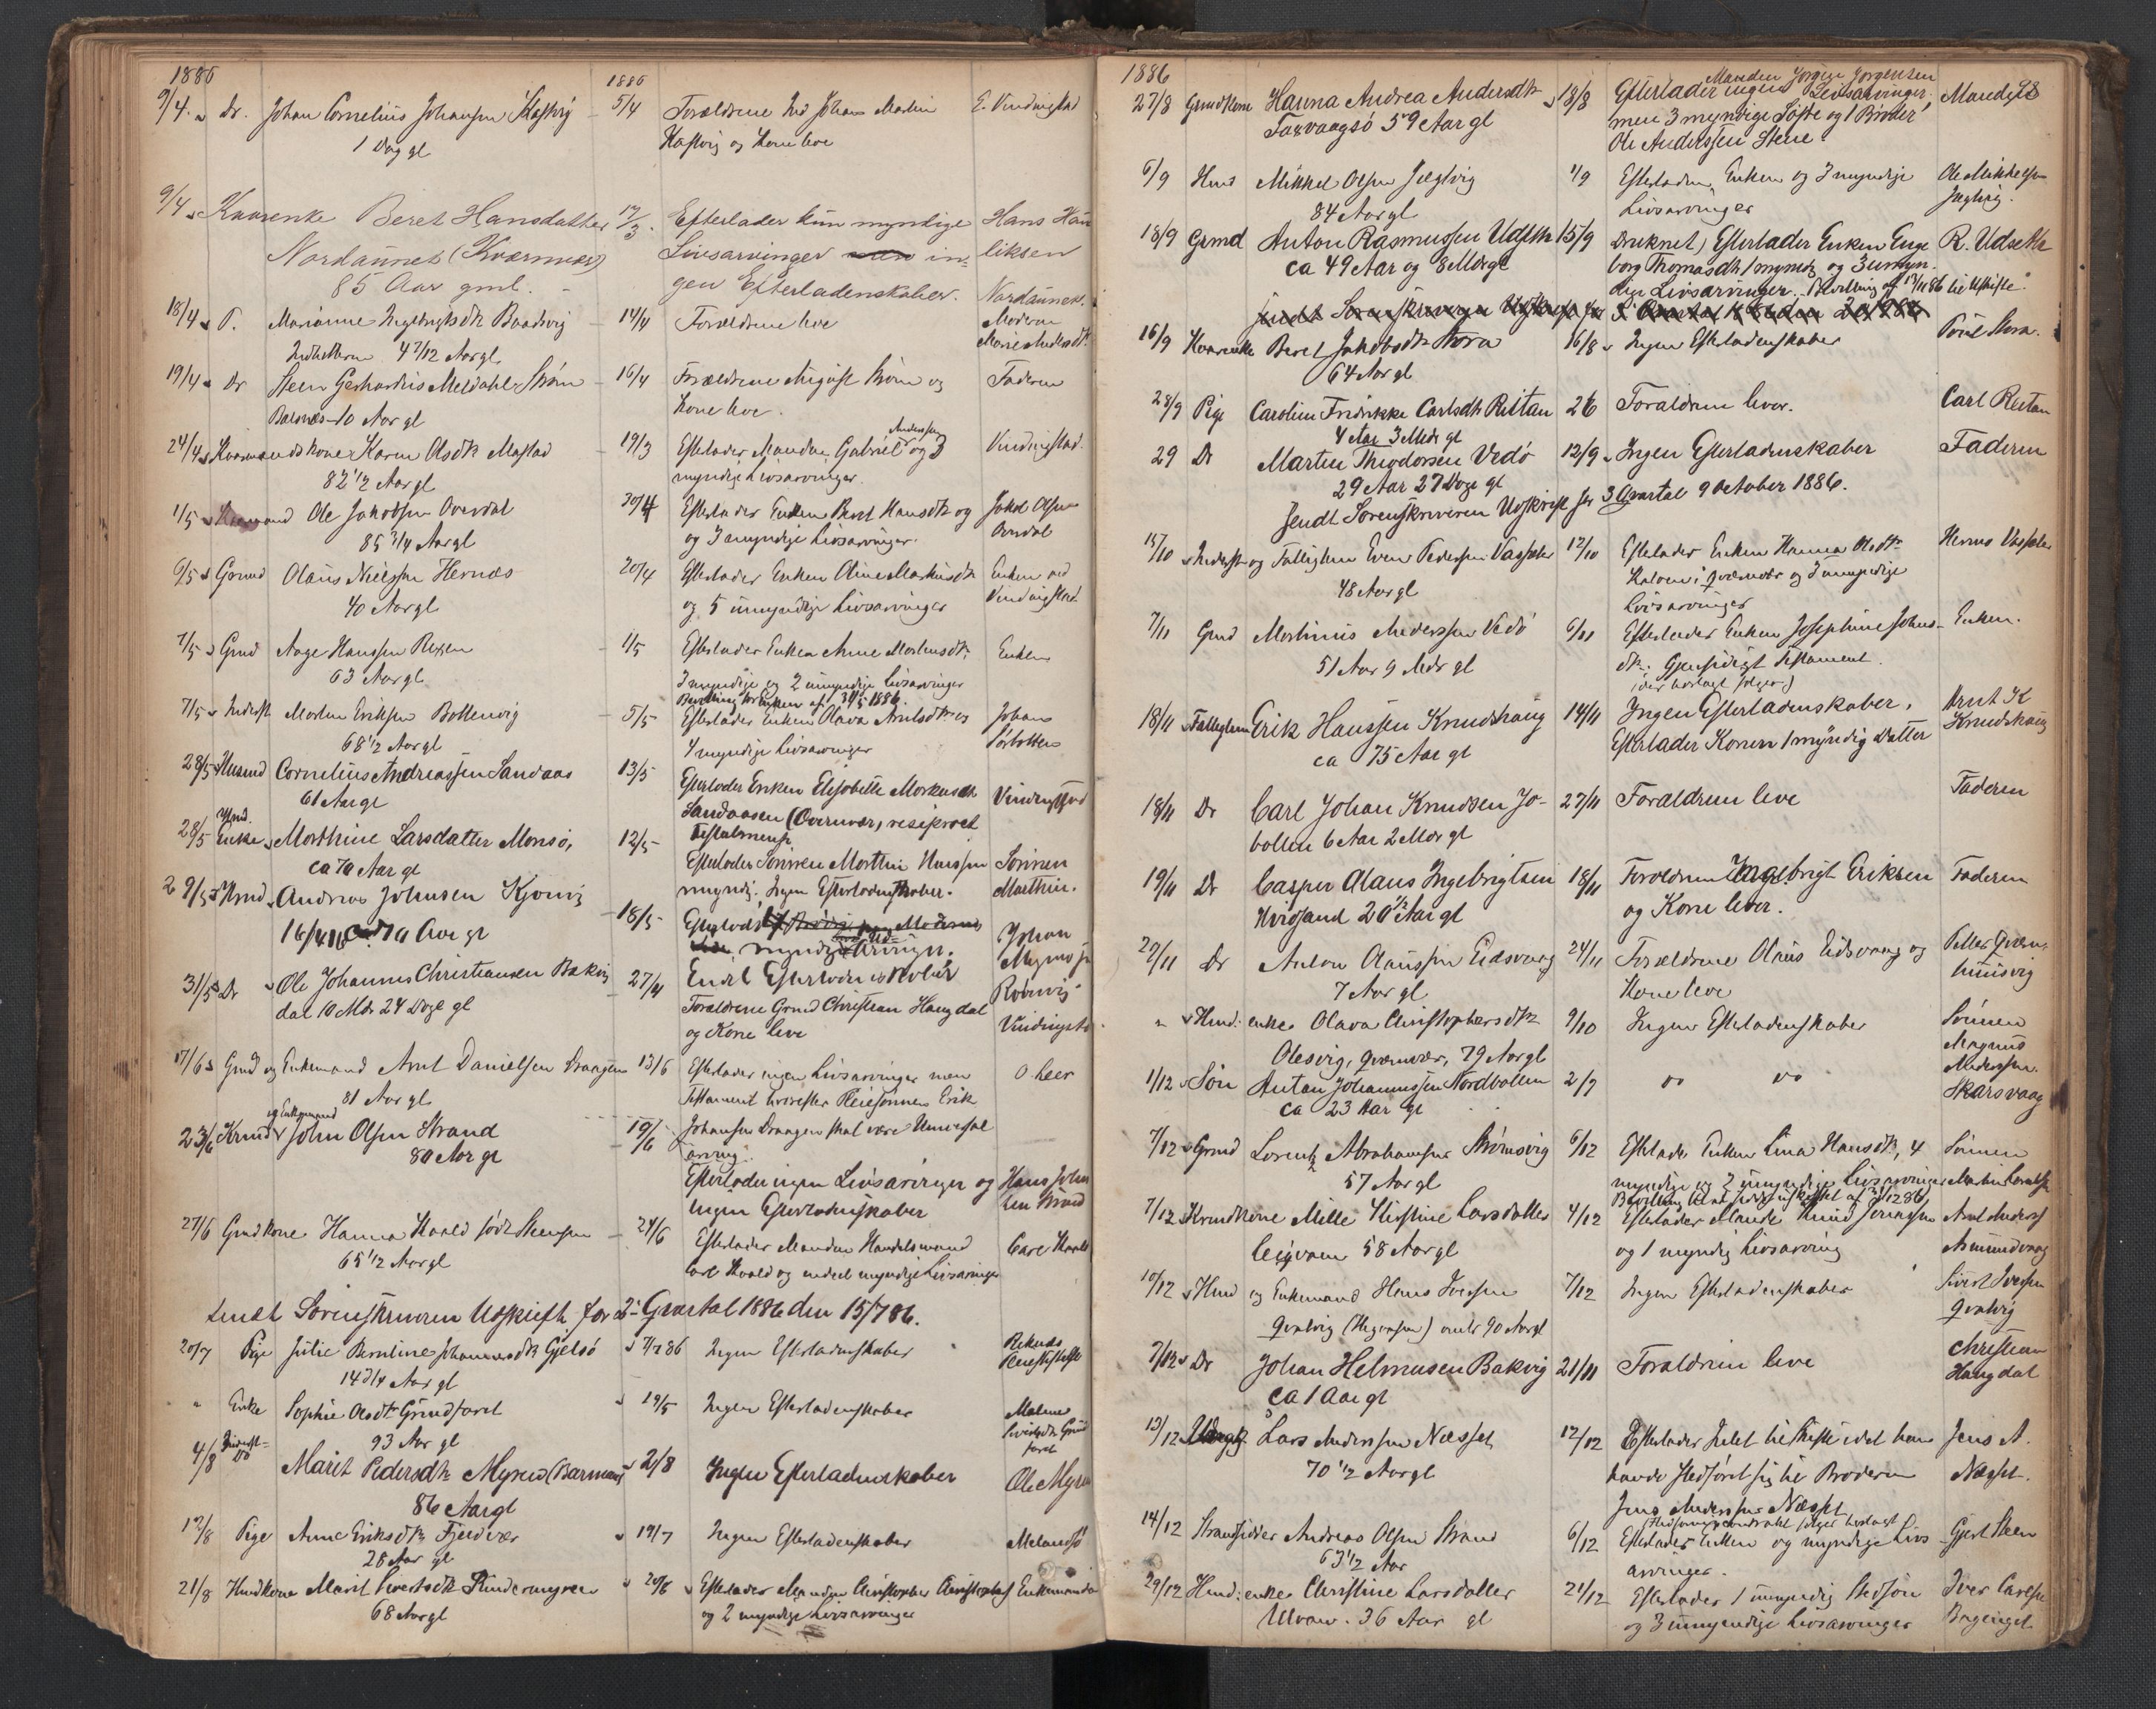 1886
9/4 Dr. Johan Cornelius Johansen Kastvig
5/4 Forældrene Johan Martin E. Vindingstad
1 Dag gl
og Kone leve
9/4 Kaarenke Beret Hansdatter 17/3 Efterlader kun myndige Hans Han
Nordannet (Kværnvær) Livsarvinger in= riksen
85 Aar gml. gen Efterladenskaber. Nordannet.
18/4 P. Marianne Ingebrigtsdtr Baadsvig 14/4 Forældrene leve Moderen
4 7/12 Aar gl Marie Andersdtr
19/4 Dr Steen Gerhardus Meldahl Strøm 16/4 Forældrene August Strøm og Faderen
Balsnes 10 Aar gl Kone leve.
24/4 Kaarmandskone Karen Olsdtr Mastad 19/3 Efterlader Manden Gabriel Andersen og 3 Vindingstad
82 1/2 Aar gl myndige Livsarvinger.
1/5 Ole Jakobsen Overdal 20/4 Efterlader Enken Beret Hansdtr og Jakob Olsen
85 3/4 Aar gl og 3 myndige Livsarvinger. Overdal
6/5 Grmd Olaus Nielsen Hernes 20/4 Efterlader Enken Oline Markusdtr Enken ved
40 Aar gl og 5 umyndige Livsarvinger Vindingstad
7/5 Grmd Aage Hanssen Rexen 1/5 Efterlader Enken Anne Mortensdtr Enken
63 Aar gl 3 myndige og 2 umyndige Livsarvinger
Bevilling 1886.
7/5 Inderst Morten Eriksen Bottenvig 5/5 Efterlader Enken Olava Arntsdtr og Johan
68 1/2 Aar gl 4 myndige Livsarvinger
28/5 Husmd Cornelius Andreassen Sandaas 13/5 Efterlader Enken Elisabeth Markusdtr Vindingstad
61 Aar gl Sandaasen (Qvernvær) resiproct
Testamente
28/5 Enke Marthine Larsdatter Monsø, 12/5 Efterlader Sønnen Martin Hanssen Sønnen
ca 70 Aar gl myndig. Ingen Efterladenskaber. Marthin.
29/5 Hmd Andreas Johnsen Kjønvig 18/5
16/4 70 Aar gl myndige Arvinger. Johan
31/5 Dr Ole Johannes Christiansen Bakvig 27/4
dal 10 Mdr 24 Dage gl Forældrene Grmd Christian Haugdal
og Kone leve Vindingstad
17/6 Grmd og Enkemand Arnt Danielsen Draagen 13/6 Efterlader ingen Livsarvinger men O. Leer
81 Aar gl Testament hvorefter Pleiesønnen Erik
Johansen Draagen skal være Universal
arving.
23/6 Krmd og Enkemand John Olsen Strand 19/6
80 Aar gl Efterlader ingen Livsarvinger og Hans John
ingen Efterladenskaber sen Strand
27/6 Grmdkone Hanna Kaald født Steensen 24/6 Efterlader Manden Handelsmand Carl Kaald
65 1/2 Aar gl Carl Kaald og endeel myndige Livsarvinger
Sendt Sorenskriveren Udskrift for 2' Qvartal 1886 den 15/7 86.
20/7 Pige Julie Berntine Johannesdtr Gjelsø 11/7 86 Ingen Efterladenskaber
14 3/4 Aar gl
" Enke Sophie Olsdtr Grindfaret 19/5 Ingen Efterladenskaber Malene
93 Aar gl
4/8 Inderst Do Marit Pedersdtr Myren (Barman) 2/8 Ingen Efterladenskaber Ole Myren
86 Aar gl
17/8 Pige Anne Eriksdtr Fjeldvær 19/7 Ingen Efterladenskaber Melandsø
28 Aar gl
21/8 Husmdkone Marit Sivertsdtr 20/8 Efterlader Manden Christopher Christophers Enkemanden
68 Aar gl og 2 myndige Livsarvinger
1886 Manden Jørgen Jørgensen
27/8 Grmdkone Hanna Andrea Andersdtr 18/8 Efterlader ingen Livsarvinger, Manden 98
Faxvaagsø 59 Aar gl men 3 myndige Søstre og 1 Broder
Ole Anderssen Stene
6/9 Hmd Mikkel Olsen Jægtvig 1/9 Efterladen Enken og 3 myndige Ole Mikkelsen
84 Aar gl Livsarvinger Jægtvig.
18/9 Grmd Anton Rasmussen Udseth 15/9 Druknet, Efterlader Enken Enge R. Udseth
ca 49 Aar og 8 Mdr gl borg Thomasdtr 1 myndig og 3 umyn.
dige Livsarvinger. Bevilling af 13/11 86 til Uskifte.
Sendt Sorenskriveren Udskrift for 3 Qvartal
16/9 Kaarenke Beret Jakobsdtr Stora 16/8 Ingen Efterladenskaber Poul Stora.
64 Aar gl
28/9 Pige Caroline Fredrikke Carlsdtr Reitan 26 Forældrene lever. Carl Reitan
4 Aar 3 Mdr gl
29 Dr Martin Theodorsen Vedø 12/9 Ingen Efterladenskaber Faderen
29 Aar 27 Dage gl
Sendt Sorenskriveren Udskrift for 3 Qvartal 9 October 1886.
15/10 Inderst og Fattiglem Even Pedersen Vasseter 12/10 Efterlader Enken Hanna Olsdtr
48 Aar gl i Qværnvær og 3 umyndige
Livsarvinger
7/11 Grmd Martinus Anderssen Vedø 6/11 Efterlader Enken Josephine Johns- Enken.
51 Aar 9 Mdr gl dtr. Gjensidigt Testament.
18/11 Fattiglem Erik Hanssen Knudshaug 14/11 Ingen Efterladenskaber. Arnt K
ca 75 Aar gl Efterlader Konen 1 myndig Datter Knudshaug
18/11 Dr Carl Johan Knudsen Jo- 27/11 Forældrene leve Faderen
botten 6 Aar 2 Mdr gl
19/11 Dr Casper Olaus Ingebrigtsen 18/11 Forældrene Ingebrigt Eriksen Faderen
Hvidsand 20 1/2 Aar gl og Kone lever.
29/11 Dr Anton Olaussen Eidsvaag 24/11 Forældrene Olaus Eidsvaag og Petter
7 Aar gl Kone leve
" Hmd: enke Olava Christophersdtr 9/10 Ingen Efterladenskaber Sønnen
Olesvig, Qvernvær, 79 Aar gl Magnus
Anderssen
1/12 Søn Anton Johannessen Nordbotten 2/9 do do Skarsvaag
ca 23 Aar gl
7/12 Grmd Lorentz Abrahamsen Strømsvig 6/12 Efterlader Enken Lina Hansdtr, 4 Sønnen
57 Aar gl myndige og 2 umyndige Livsarvinger
7/12 Krmdkone Mille Kirstine Larsdatter 4/12 Efterlader Mande Knud Jørgensen
58 Aar gl og 1 myndig Livsarving
10/12 Hmd og Enkemand Hans Iversen 7/12 Ingen Efterladenskaber Sivert Iversen
Qvalvig omtr 90 Aar gl Qvalvig
7/12 Dr Johan Helmusen Bakvig 21/11 Forældrene leve Christian
ca 1 Aar gl Haugdal
13/12 Lars Anderssen Nesset 12/12 Efterlader Intet til Skifte idet han Jens A.
70 1/2 Aar gl havde fledført sig til Broderen Nesset.
Jens Anderssen Nesset
14/12 Strandsidder Andreas Olsen Strand 6/12 Efterlader Enken og myndige Livs Gjert Steen
63 1/2 Aar arvinger.
29/12 Hmd: enke Christine Larsdatter 21/12 Efterlader 1 umyndig Stedsøn Iver Carlsen
Ulvan. 36 Aar gl og 3 umyndige Livsarvinger